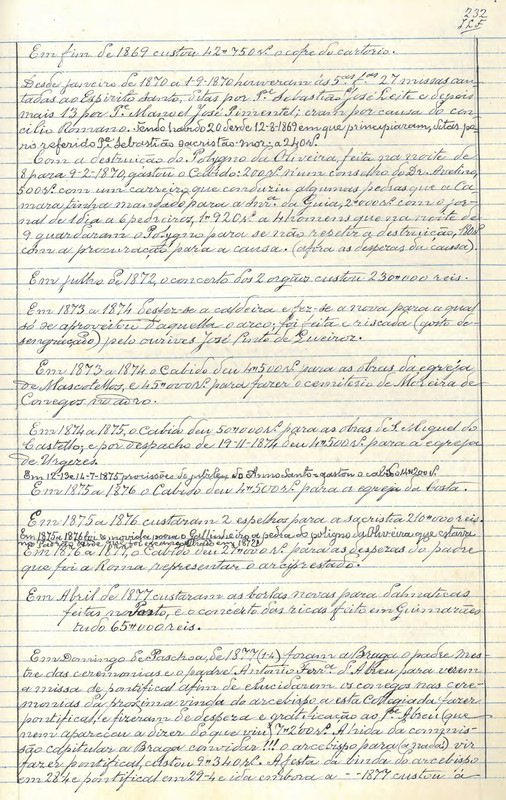 232
J.L.F.
Em fim de 1869 custou 42#750 rs. o cofre do cartorio.
Desde janeiro de 1870 a 1-9-1870 houveram ás 5.as f.as 27 missas can-
tadas ao Espirito Santo, ditas por P.e Sebastião José Leite e depois
mais 13 por P.e Manuel José Pimentel; eram por causa do con-
cilio Romano. Tendo havido 20 desde 12-8-1869 em que principiaram, ditas pe-
lo referido P.e Sebastião sacristão-mor, a 240 rs.
Com a destruição do Polygno da Oliveira, feita na noite de
8 para 9-2-1870, gastou o Cabido: 200 rs. n'um conselho do Dr. Avelino,
500 rs. com um carreiro que conduziu algumas pedras que a Ca-
mara tinha mandado para a Snr.a da Guia, 2#000 rs. com o jor-
nal de 1 dia a 6 pedreiros, 1#920 rs. a 4 homens que na noite de
9 guardaram o Polygno para se não repetir a destruição, 180 rs.
com a procuração para a causa. (afóra as despezas da causa).
Em julho de 1872, o concerto dos 2 orgãos custou 230#000 reis.
Em 1873 a 1874 desfez-se a caldeira e fez-se a nova para a qual
só se aproveitou d'aquella o arco; foi feita e riscada (gosto de-
sengraçado) pelo ourives José Pinto de Queiroz.
Em 1873 a 1874 o Cabido deu 4#500 rs. para as obras da egreja
de Mascotellos, e 45#000 rs. para fazer o cemiterio de Moreira de
Conegos no adro.
Em 1874 a 1875, o Cabido deu 50#000 rs. para as obras de S. Miguel do
Castello; e por despacho de 19-11-1874 deu 4#500 rs. para a egreja
de Urgezes.
Em 12-13 e 14-7-1875 procissões do jubileu do Anno Santo: gastou o cabido 14#200 rs.
Em 1875 a 1876 o Cabido deu 4#500 rs. para a egreja da Costa.
Em 1875 a 1876 custaram 2 espelhos para a sacristia 210#000 reis.
Em 1875 a 1876 foi removida para o Gallinheiro a pedra do poligno da Oliveira que estava
Em 1876 a 1877, o Cabido deu 27#000 rs. para as despezas do padre
que foi a Roma representar o arciprestado.
Em Abril de 1877 custaram as borlas novas para dalmaticas
feitas no Porto, e o concerto das ricas feito em Guimarães
tudo 65#000 reis.
Em Domingo de Paschoa, de 1877 (1-4) foram a Braga o padre mes-
tre das ceremonias e o padre Antonio Ferr.a d'Abreu para verem
a missa de pontifical afim de elucidarem os conegos nas cere-
monias da proxima vinda do arcebispo a esta Collegiada fazer
pontifical, e fizeram de despeza e gratificação ao P.e Abreu (que
nem apareceu a dizer do que viu) 7#200 rs. A hida da commis-
são capitular a Braga convidar !!! o arcebispo para vir
fazer pontifical, custou 9#340 rs. A festa da vinda do arcebispo
em 28-4 e pontifical em 29-4 e ida embora a - - 1877 custou á